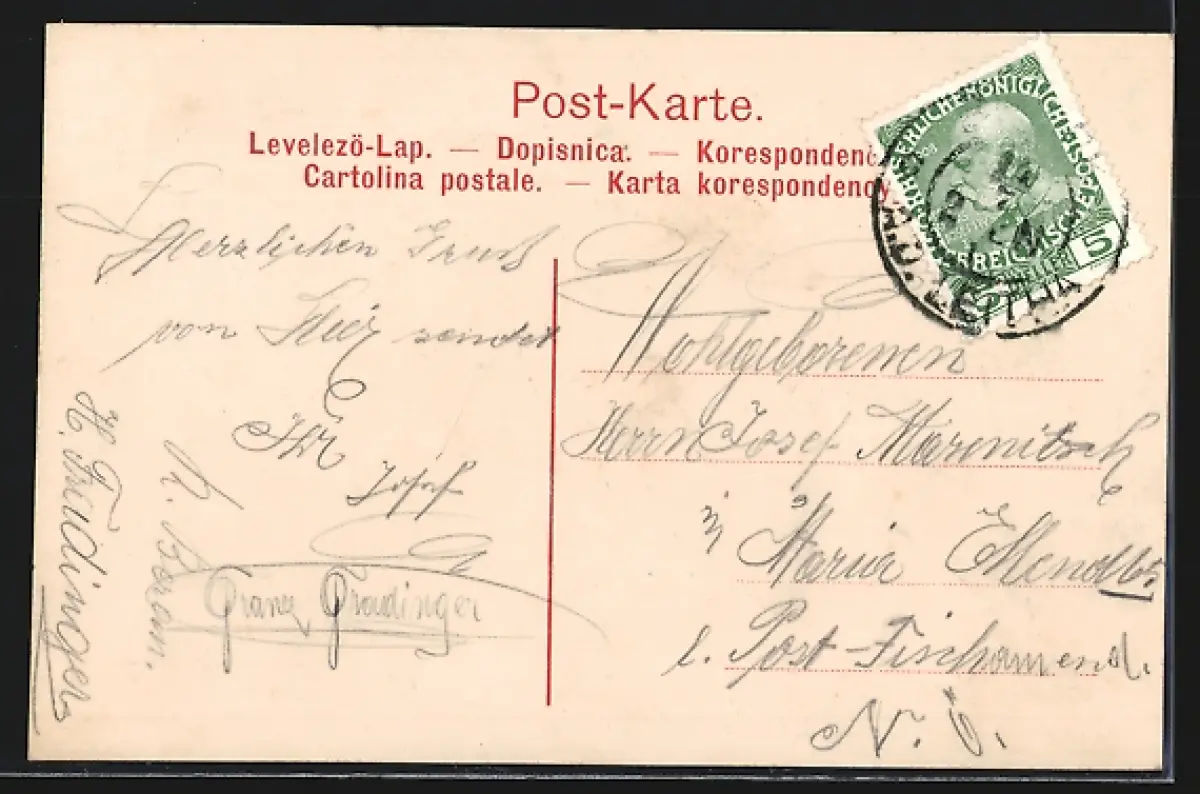 Post-Karte.
Levelező-Lap. — Dopisnica. — Korespondenc
Cartolina postale. — Karta korespondency
KAISERLICHE KÖNIGLICHE ÖSTERREICHISCHE POST
5 HELLER 5
A.D. LEITHA
Herzlichen Gruß
von Hier sendet
Ihr
Josef
Franz Fraudinger
H. Fraudinger
Wohlgeborenen
Herrn Josef Marenitsch
in Maria Ellend
l. Post Fischamend.
N. Ö.